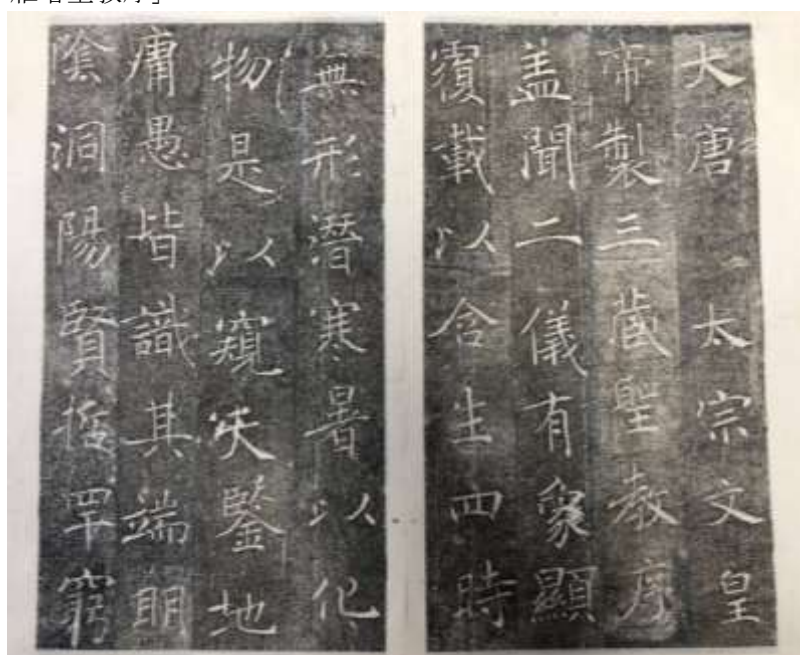 雁塔聖教序」
大唐 太宗文皇
帝製三藏聖教序
盖聞二儀有象顯
覆載以含生四時
無形潛寒暑以化
物是以窺天鑒地
庸愚皆識其端明
陰洞陽賢哲罕窮